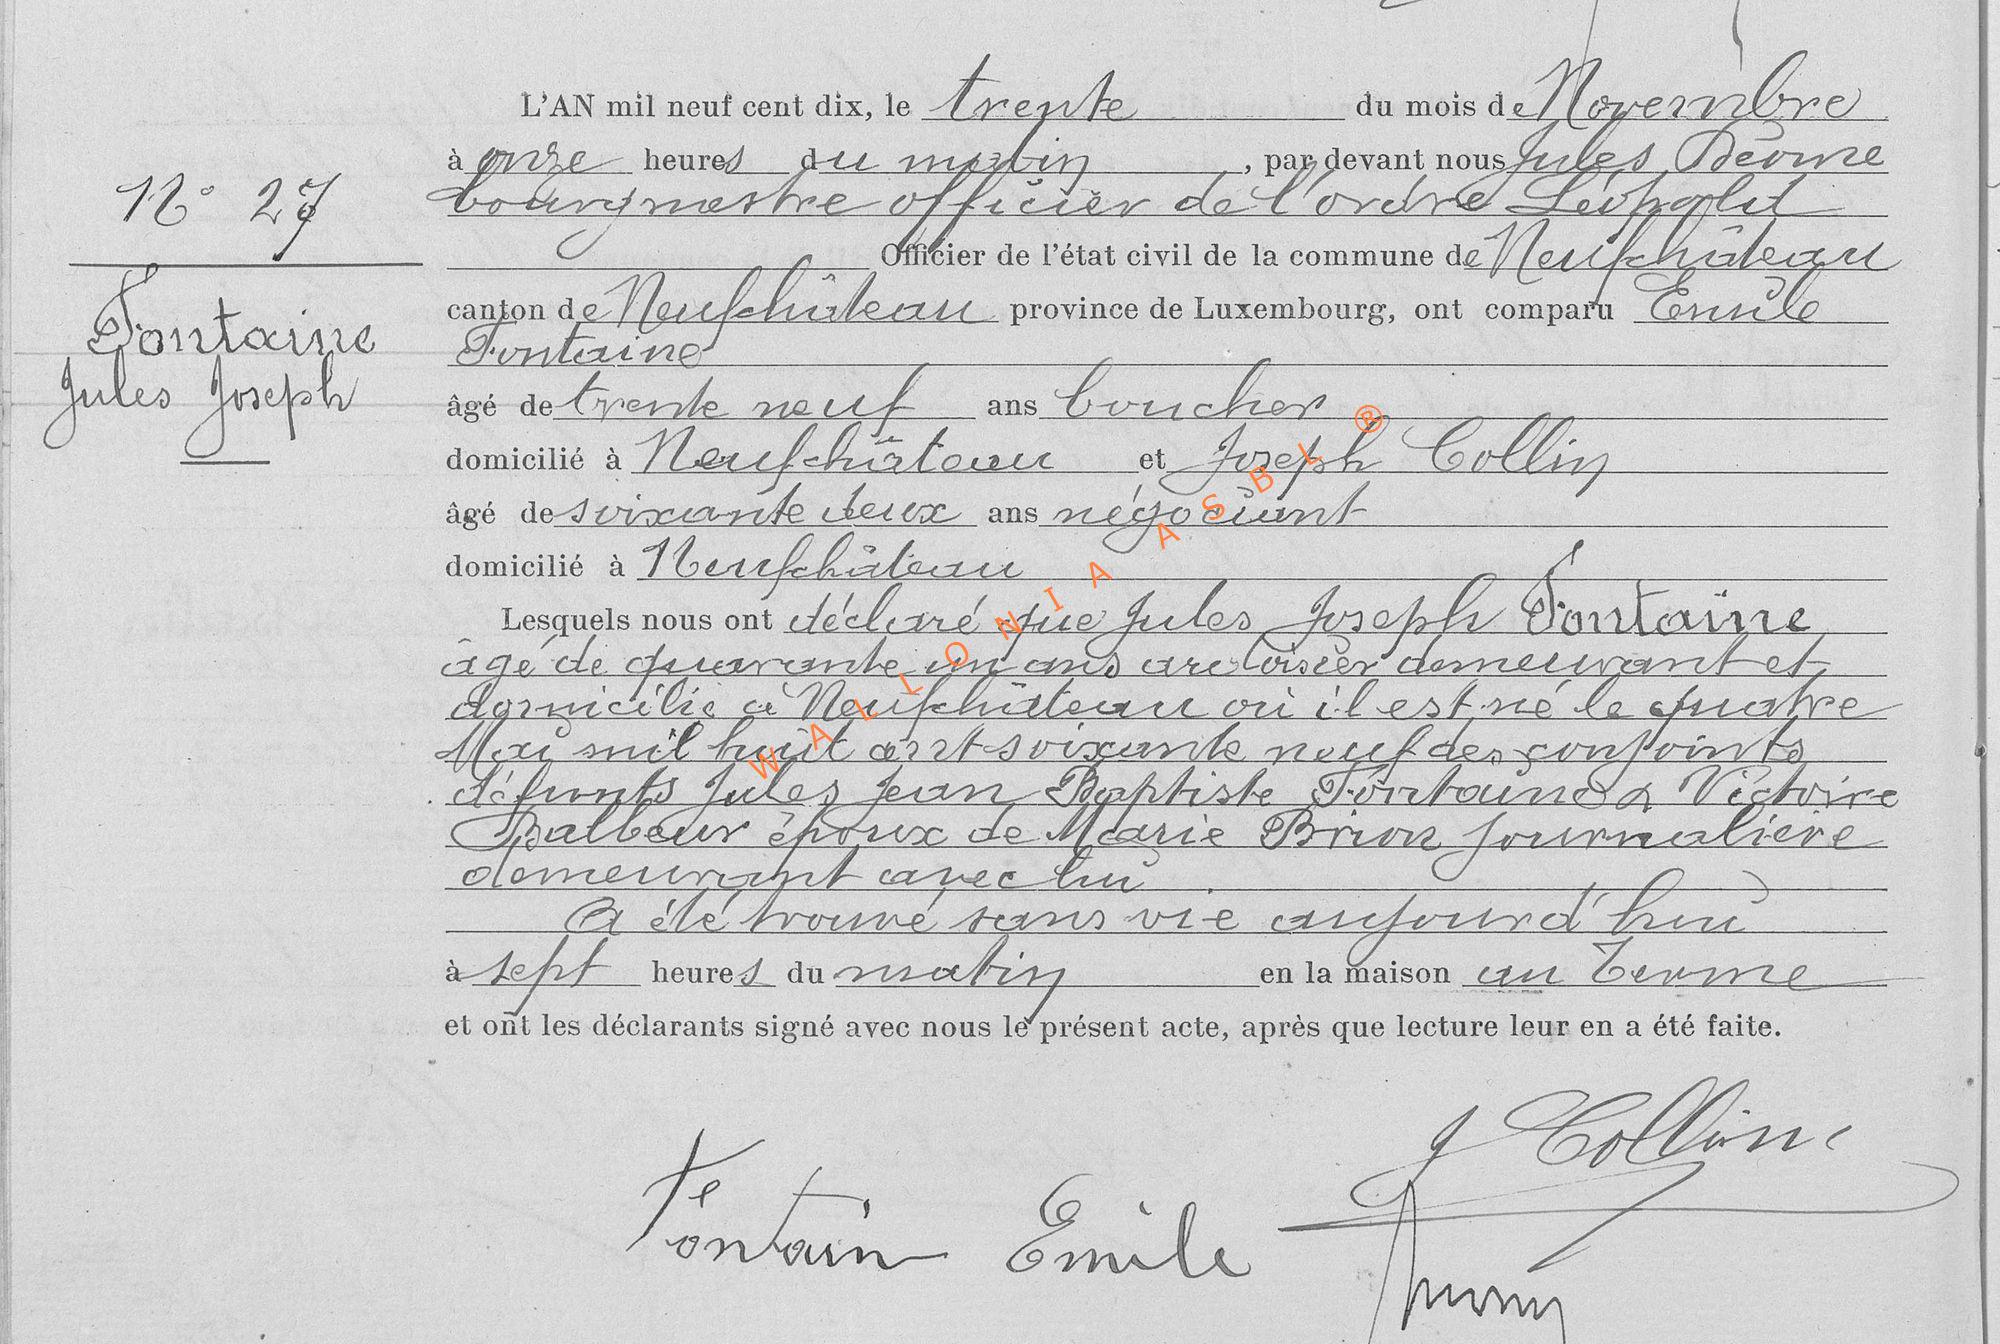 L'AN mil neuf cent dix, le trente du mois de Novembre
à onze heures du matin, par devant nous Jules
bourgmestre officier de l'ordre Léopold
Officier de l'état civil de la commune de Neufchâteau
canton de Neufchâteau province de Luxembourg, ont comparu Emile
Fontaine
âgé de trente neuf ans boucher
domicilié à Neufchâteau et Joseph Collin
âgé de soixante deux ans négociant
domicilié à Neufchâteau
Lesquels nous ont déclaré que Jules Joseph Fontaine
âgé de quarante un ans ardoisier demeurant et
domicilié à Neufchâteau où il est né le quatre
Mai mil huit cent soixante neuf des conjoints
défunts Jules Jean Baptiste Fontaine & Victoire
Balbeur époux de Marie Brion journalière
demeurant avec lui.
A été trouvé sans vie aujourd'hui
à sept heures du matin en la maison au Terme
et ont les déclarants signé avec nous le présent acte, après que lecture leur en a été faite.
N° 27
Fontaine
Jules Joseph
J Collin
Fontain Emile
WALLONIA ASBL ®